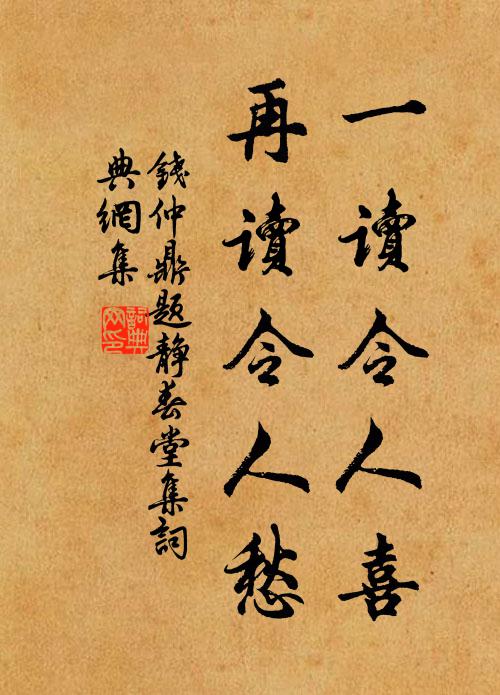 一讀令人喜
再讀令人愁
錢仲鼎題靜春堂集詞
典網集
詞典
网印